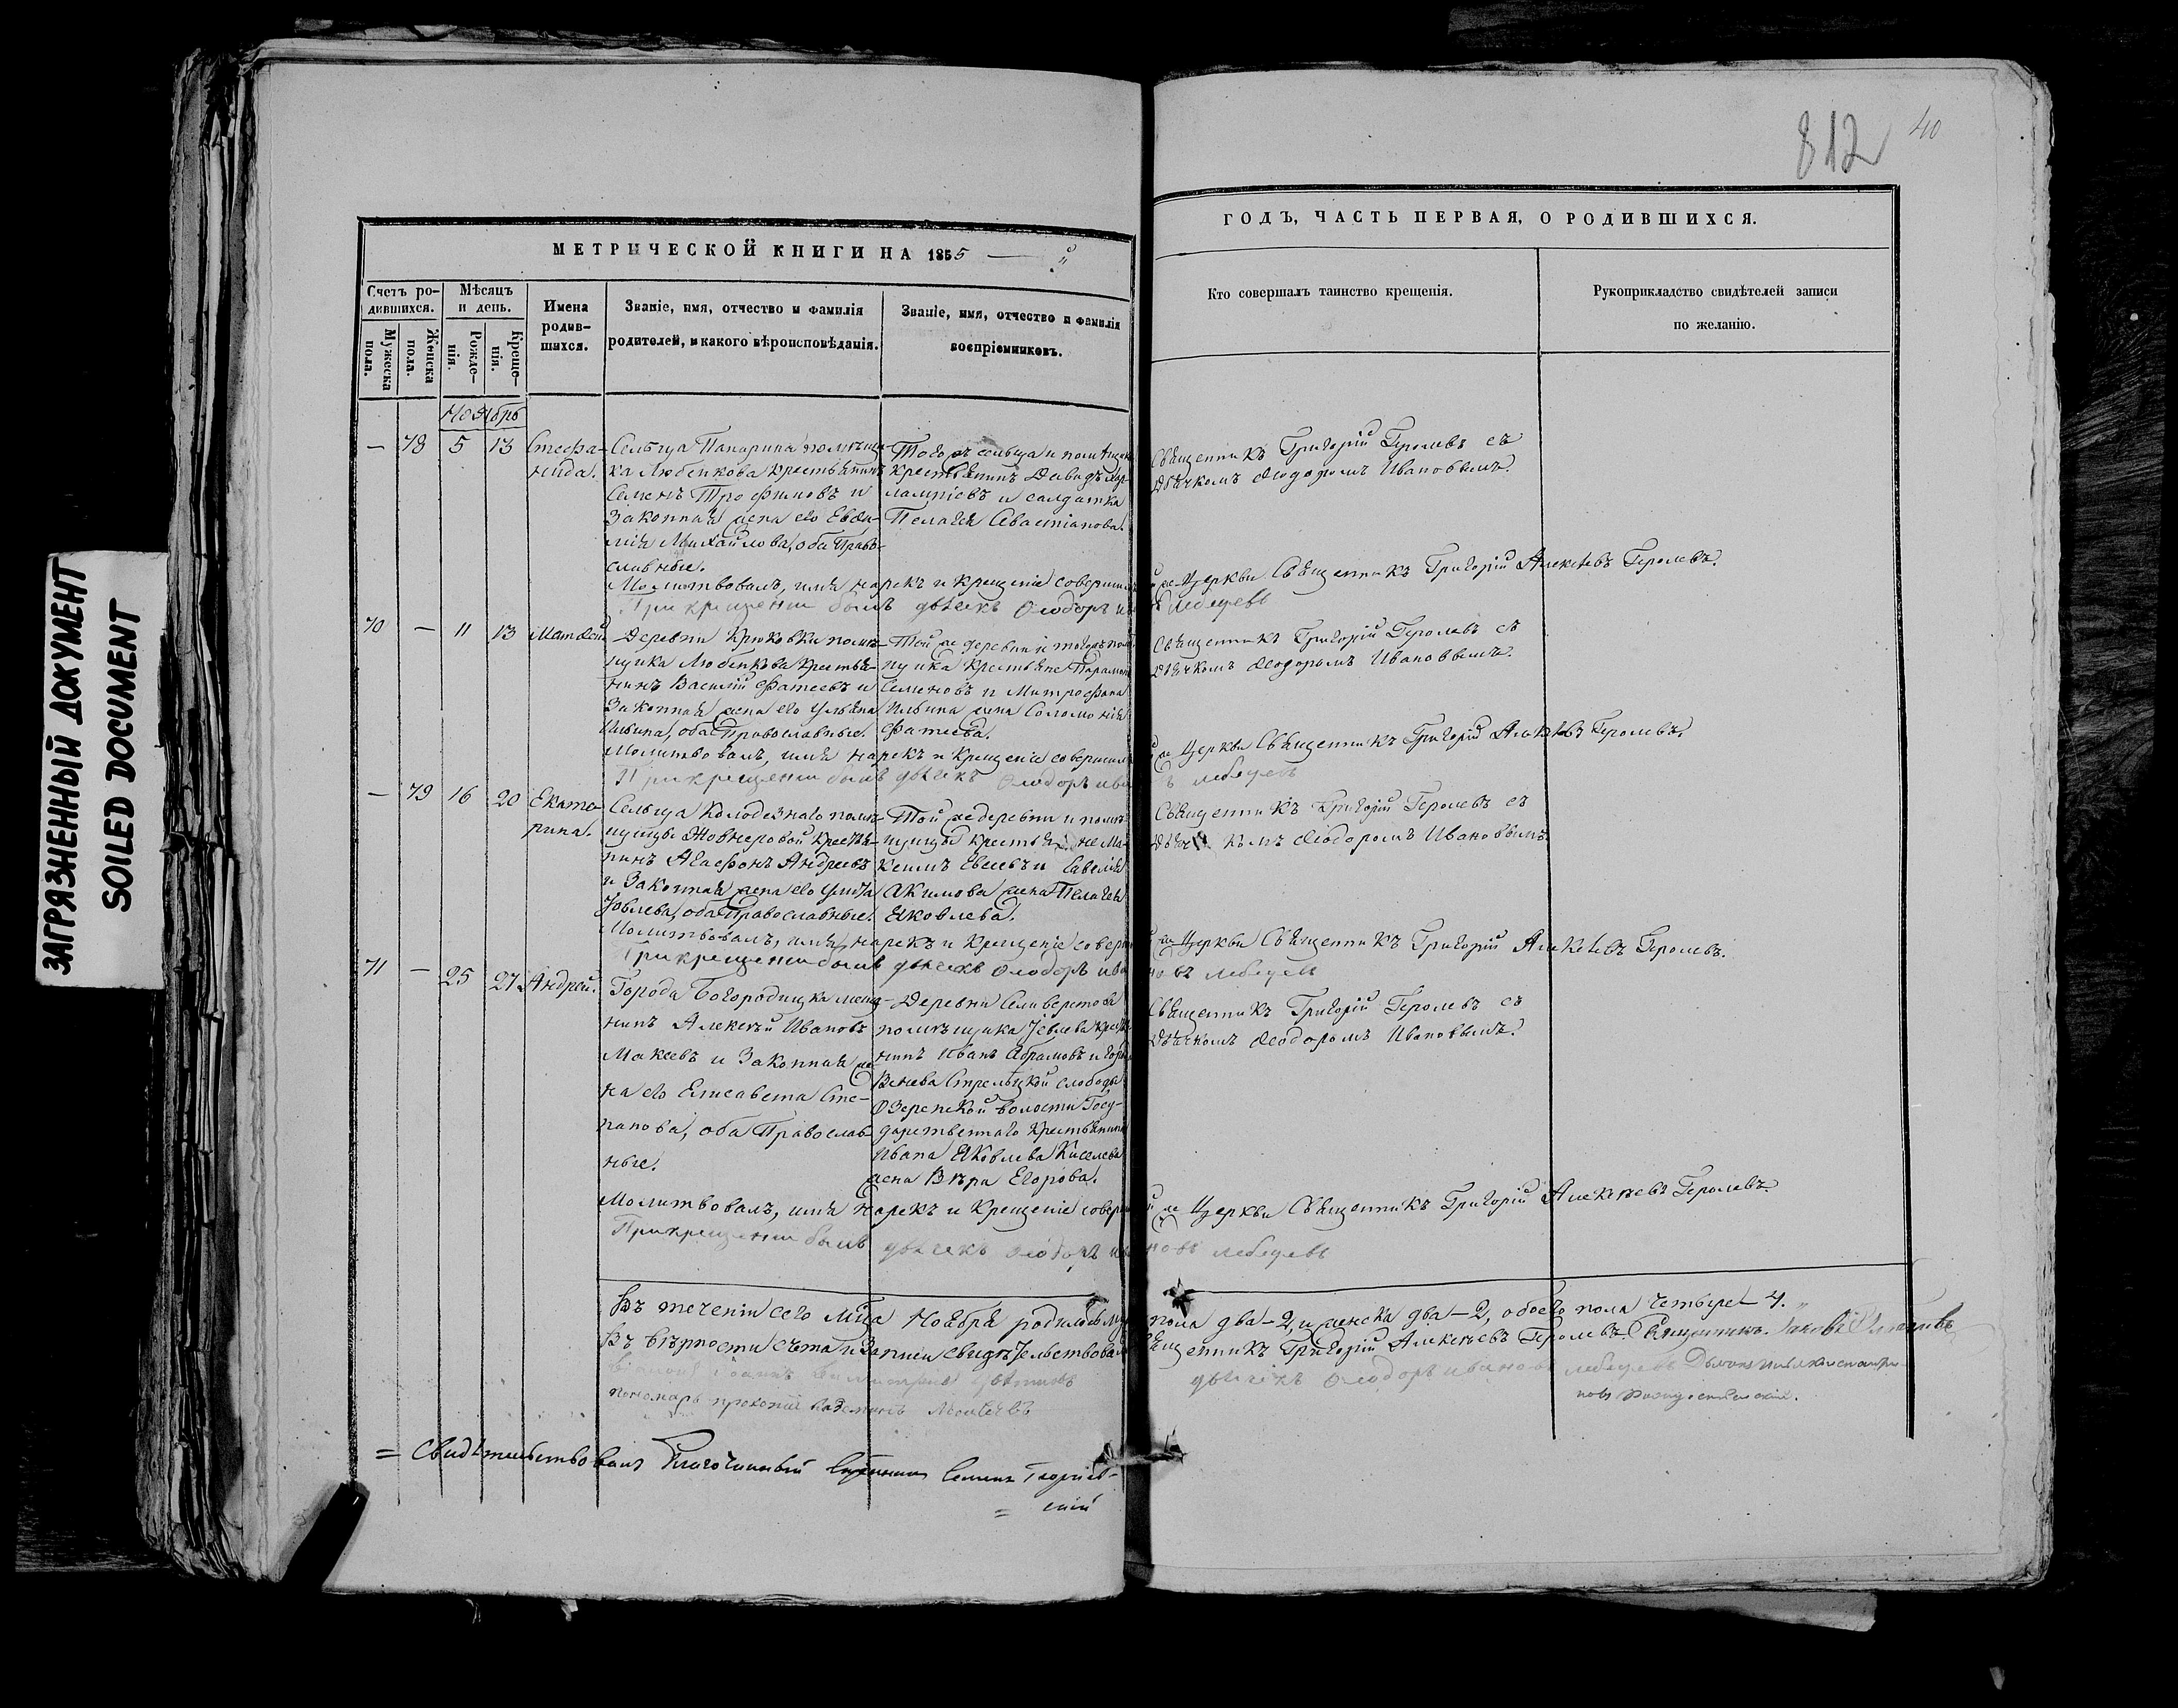 ЗАГРЯЗНЕННЫЙ ДОКУМЕНТ
SOILED DOCUMENT
812
40
МЕТРИЧЕСКОЙ КНИГИ НА 1855 — й
ГОДЪ, ЧАСТЬ ПЕРВАЯ, О РОДИВШИХСЯ.
Счетъ ро-
дившихся.
Мужеска
пола.
Женска
пола.
Мѣсяцъ
и день.
Рожде-
нія.
Креще-
нія.
Имена
родив-
шихся.
Званіе, имя, отчество и фамилія
родителей, и какого вѣроисповѣданія.
Званіе, имя, отчество и фамилія
воспріемниковъ.
Кто совершалъ таинство крещенія.
Рукоприкладство свидѣтелей записи
по желанію.
Ноябрь
— 78 5 13
Стефа-
нида.
Сельца Папарина помѣщи-
ка Любенкова Крестьянинъ
Семенъ Трофимовъ и
Законная жена его Евѳи-
мія Михайлова, оба Право-
славные.
Тогожъ сельца и помѣщика
крестьянинъ Давидъ Хар-
лампіевъ и салдатка
Пелагея Савастіанова.
Священникъ Григорій Геролевъ съ
Дьячкомъ Ѳеодоромъ Ивановымъ.
Молитвовалъ, имя нарекъ и Крещеніе совершилъ же Церкви Священникъ Григорій Алексѣевъ Геролевъ.
При крещении былъ дьячекъ Ѳеодоръ Лебедевъ
70 — 11 13
Матѳей
Деревни Крюковки помѣ-
щика Любенкова Крестья-
нинъ Василій Фатеевъ и
Законная жена его Ульяна
Ильина, оба Православные.
Той же деревни и тогожъ помѣ-
щика Крестьяне Парамонъ
Семеновъ и Митрофана
Ильина жена Соломонія
Фатеева.
Священникъ Григорій Геролевъ съ
Дьячкомъ Ѳеодоромъ Ивановымъ.
Молитвовалъ, имя нарекъ и Крещеніе совершилъ же Церкви Священникъ Григорій Алексѣевъ Геролевъ.
При крещении былъ дьячекъ Ѳеодоръ Лебедевъ
— 79 16 20
Екате-
рина.
Сельца Колодезнаго помѣ-
щицы Жовнеровой Крестья-
нинъ Агафонъ Андреевъ
и Законная жена его Улита
Іовлева, оба Православные.
Той же деревни и помѣ-
щицы Крестьяне Ма-
ксимъ Евсеевъ и Савелія
Акимова жена Пелагея
Яковлева.
Священникъ Григорій Геролевъ съ
Дьячкомъ Ѳеодоромъ Ивановымъ.
Молитвовалъ, имя нарекъ и Крещеніе совершилъ же Церкви Священникъ Григорій Алексѣевъ Геролевъ.
При крещении былъ дьячекъ Ѳеодоръ Ивановъ Лебедевъ
71 — 25 27
Андрей.
Города Богородицка мѣща-
нинъ Алексѣй Ивановъ
Макеевъ и Законная же-
на его Елисавета Сте-
панова, оба Православ-
ные.
Деревни Селиверстова
помѣщика Іевлева Крестья-
нинъ Иванъ Абрамовъ и города
Венева Стрелецкой слободы
Озеренской волости Госу-
дарственнаго Крестьянина
Ивана Яковлева Киселева
жена Вѣра Егорова.
Священникъ Григорій Геролевъ съ
Дьячкомъ Ѳеодоромъ Ивановымъ.
Молитвовалъ, имя нарекъ и Крещеніе совершилъ же Церкви Священникъ Григорій Алексѣевъ Геролевъ.
При крещении былъ дьячекъ Ѳеодоръ Ивановъ Лебедевъ
Въ теченіи сего мѣсяца Ноября родилось муж. пола два — 2, и женска два — 2, обоего пола четыре — 4.
Въ вѣрности счета и Записи свидѣтельствовали Священникъ Григорій Алексѣевъ Геролевъ. Священникъ Іаковъ
Іоаннъ дьячекъ Ѳеодоръ Ивановъ Лебедевъ Дьячокъ
пономарь Прокопій Моисеевъ
Свидѣтельствовалъ Благочинный Священникъ Семенъ Георгіев-
скій